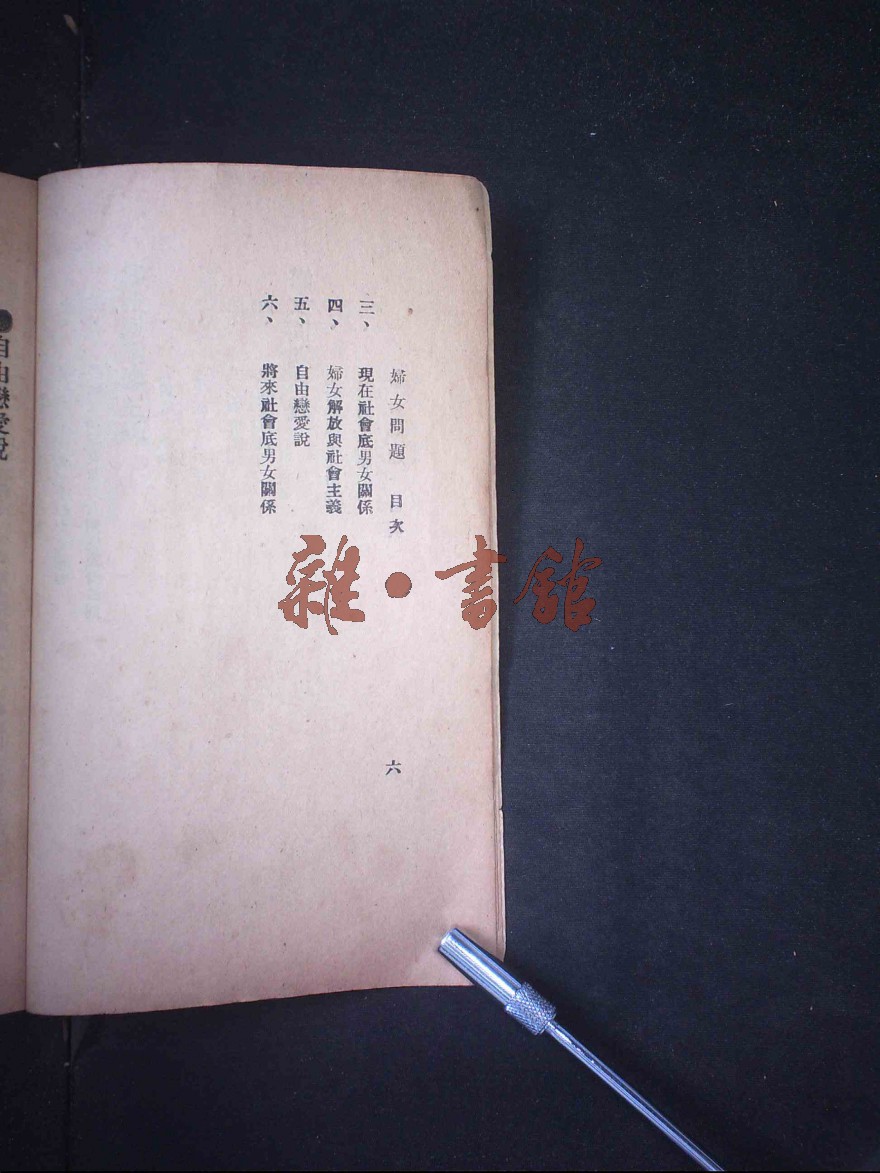 婦女問題 目次
六
三、 現在社會底男女關係
四、 婦女解放與社會主義
五、 自由戀愛說
六、 將來社會底男女關係
●自由戀愛說
雜•書館